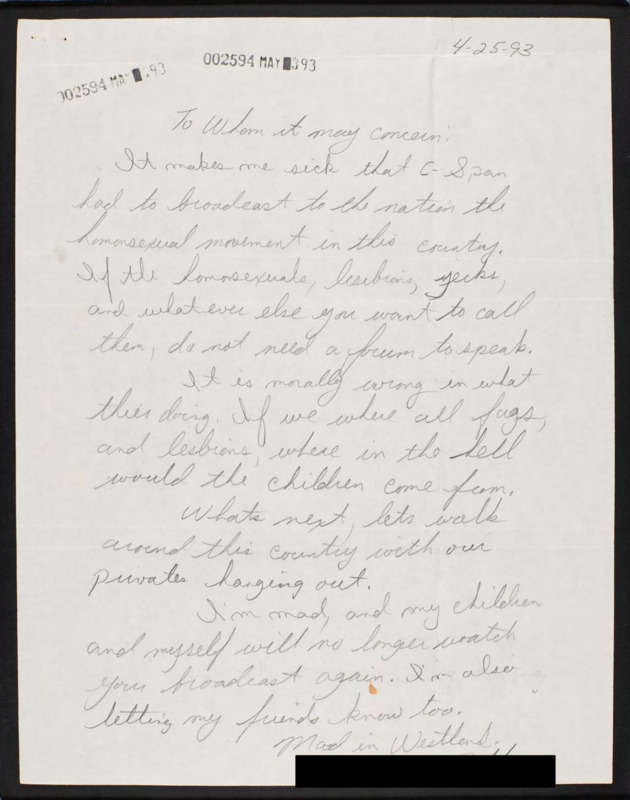 4-25-93
002594 MAY 93
002594 MAY 393
To Whom it may concern:
It makes me sick that C-Span
had to broadcast to the nation the
homonsexual movement in this country.
If the homonsexuals, lesibions, jerks,
and whatever else you want to call
them, do not need a forum to speak.
It is morally wrong in what
thier doing. If we where all fags,
and lesbions, where in the hell
would the children come from.
Whats next, lets walk
around this country with our
privates hanging out.
I'm mad, and my children
and myself will no longer watch
your broadcast again. I'm also
letting my friends know too.
Mad in Westland.